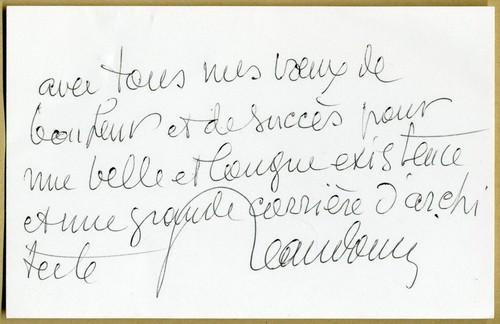 avec tous mes vœux de
bonheur et de succès pour
une belle et longue existence
et une grande carrière d'archi
tecte